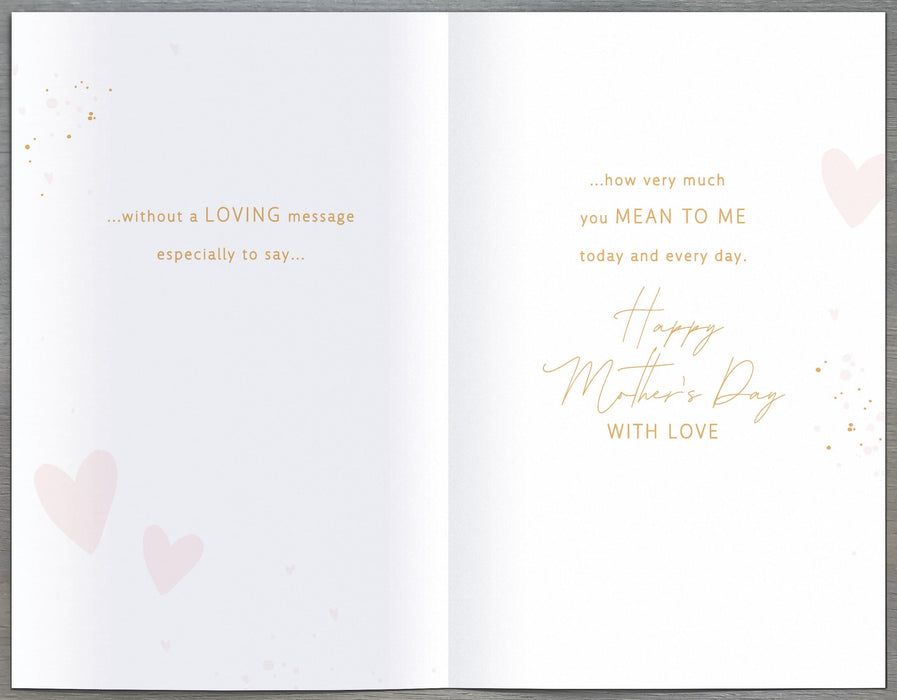 ...without a LOVING message
especially to say...
...how very much
you MEAN TO ME
today and every day.
Happy
Mother's Day
WITH LOVE